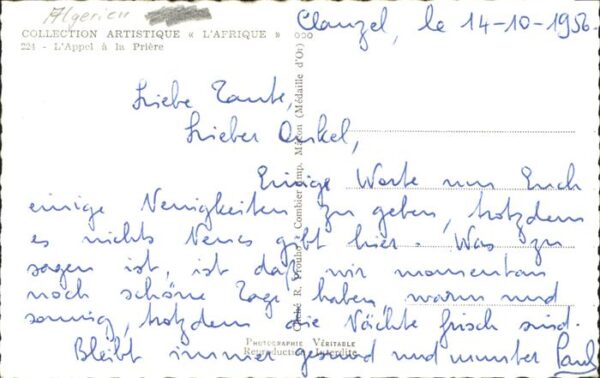 Algerien
COLLECTION ARTISTIQUE « L'AFRIQUE »
224 - L'Appel à la Prière
Clauzel, le 14-10-1956.
Liebe Tante,
Lieber Onkel,
Einige Worte um Euch
einige Neuigkeiten zu geben, trotzdem
es nichts Neues gibt hier. Was zu
sagen ist, ist daß wir momentan
noch schöne Tage haben, warm und
sonnig, trotzdem die Nächte frisch sind.
Bleibt immer gesund und munter Paul
Cliché R. Combier Imp. Mâcon (Médaille d'Or)
PHOTOGRAPHIE VÉRITABLE
Reproduction Interdite